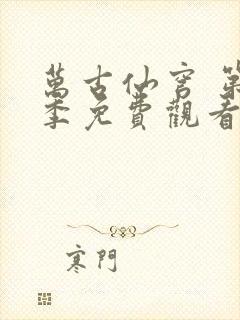 萬古仙穹 第
季免費觀看
寒門